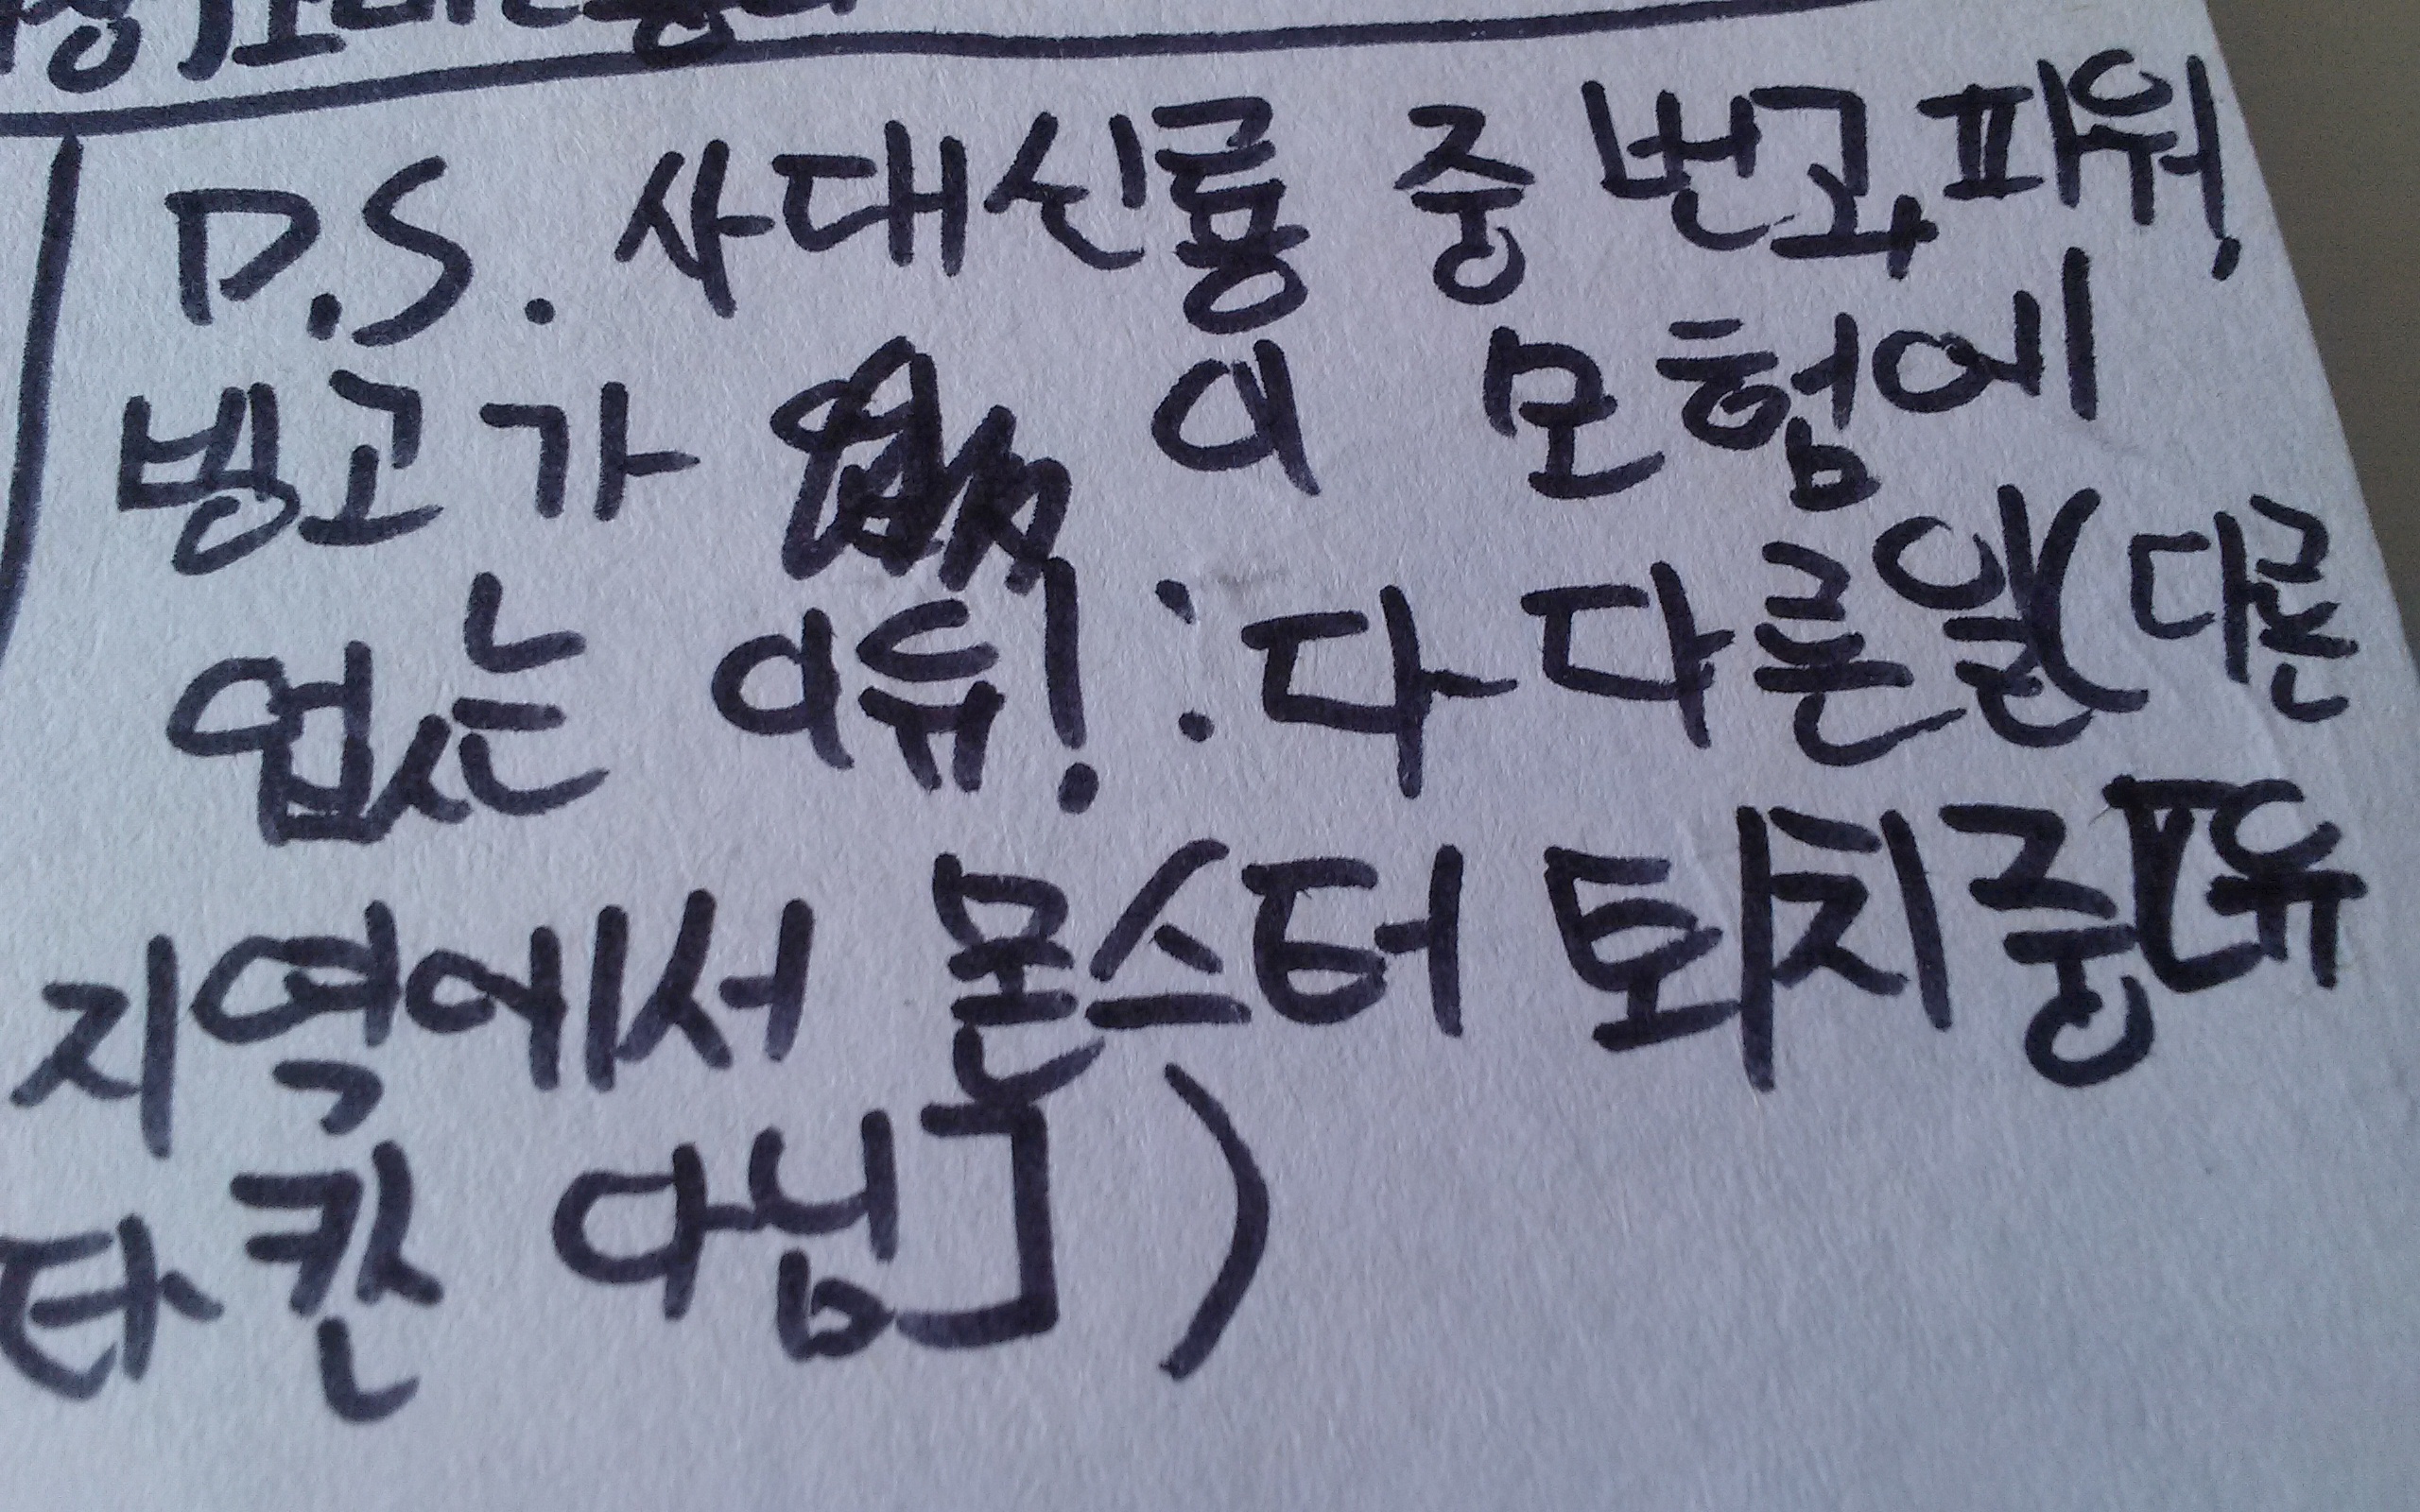 D.S. 사대신룡 중 번고, 파워,
빙고가 이 모험에
없는 이유! : 다 다른일(다른
지역에서 몬스터 퇴치중[유
타칸 아님])